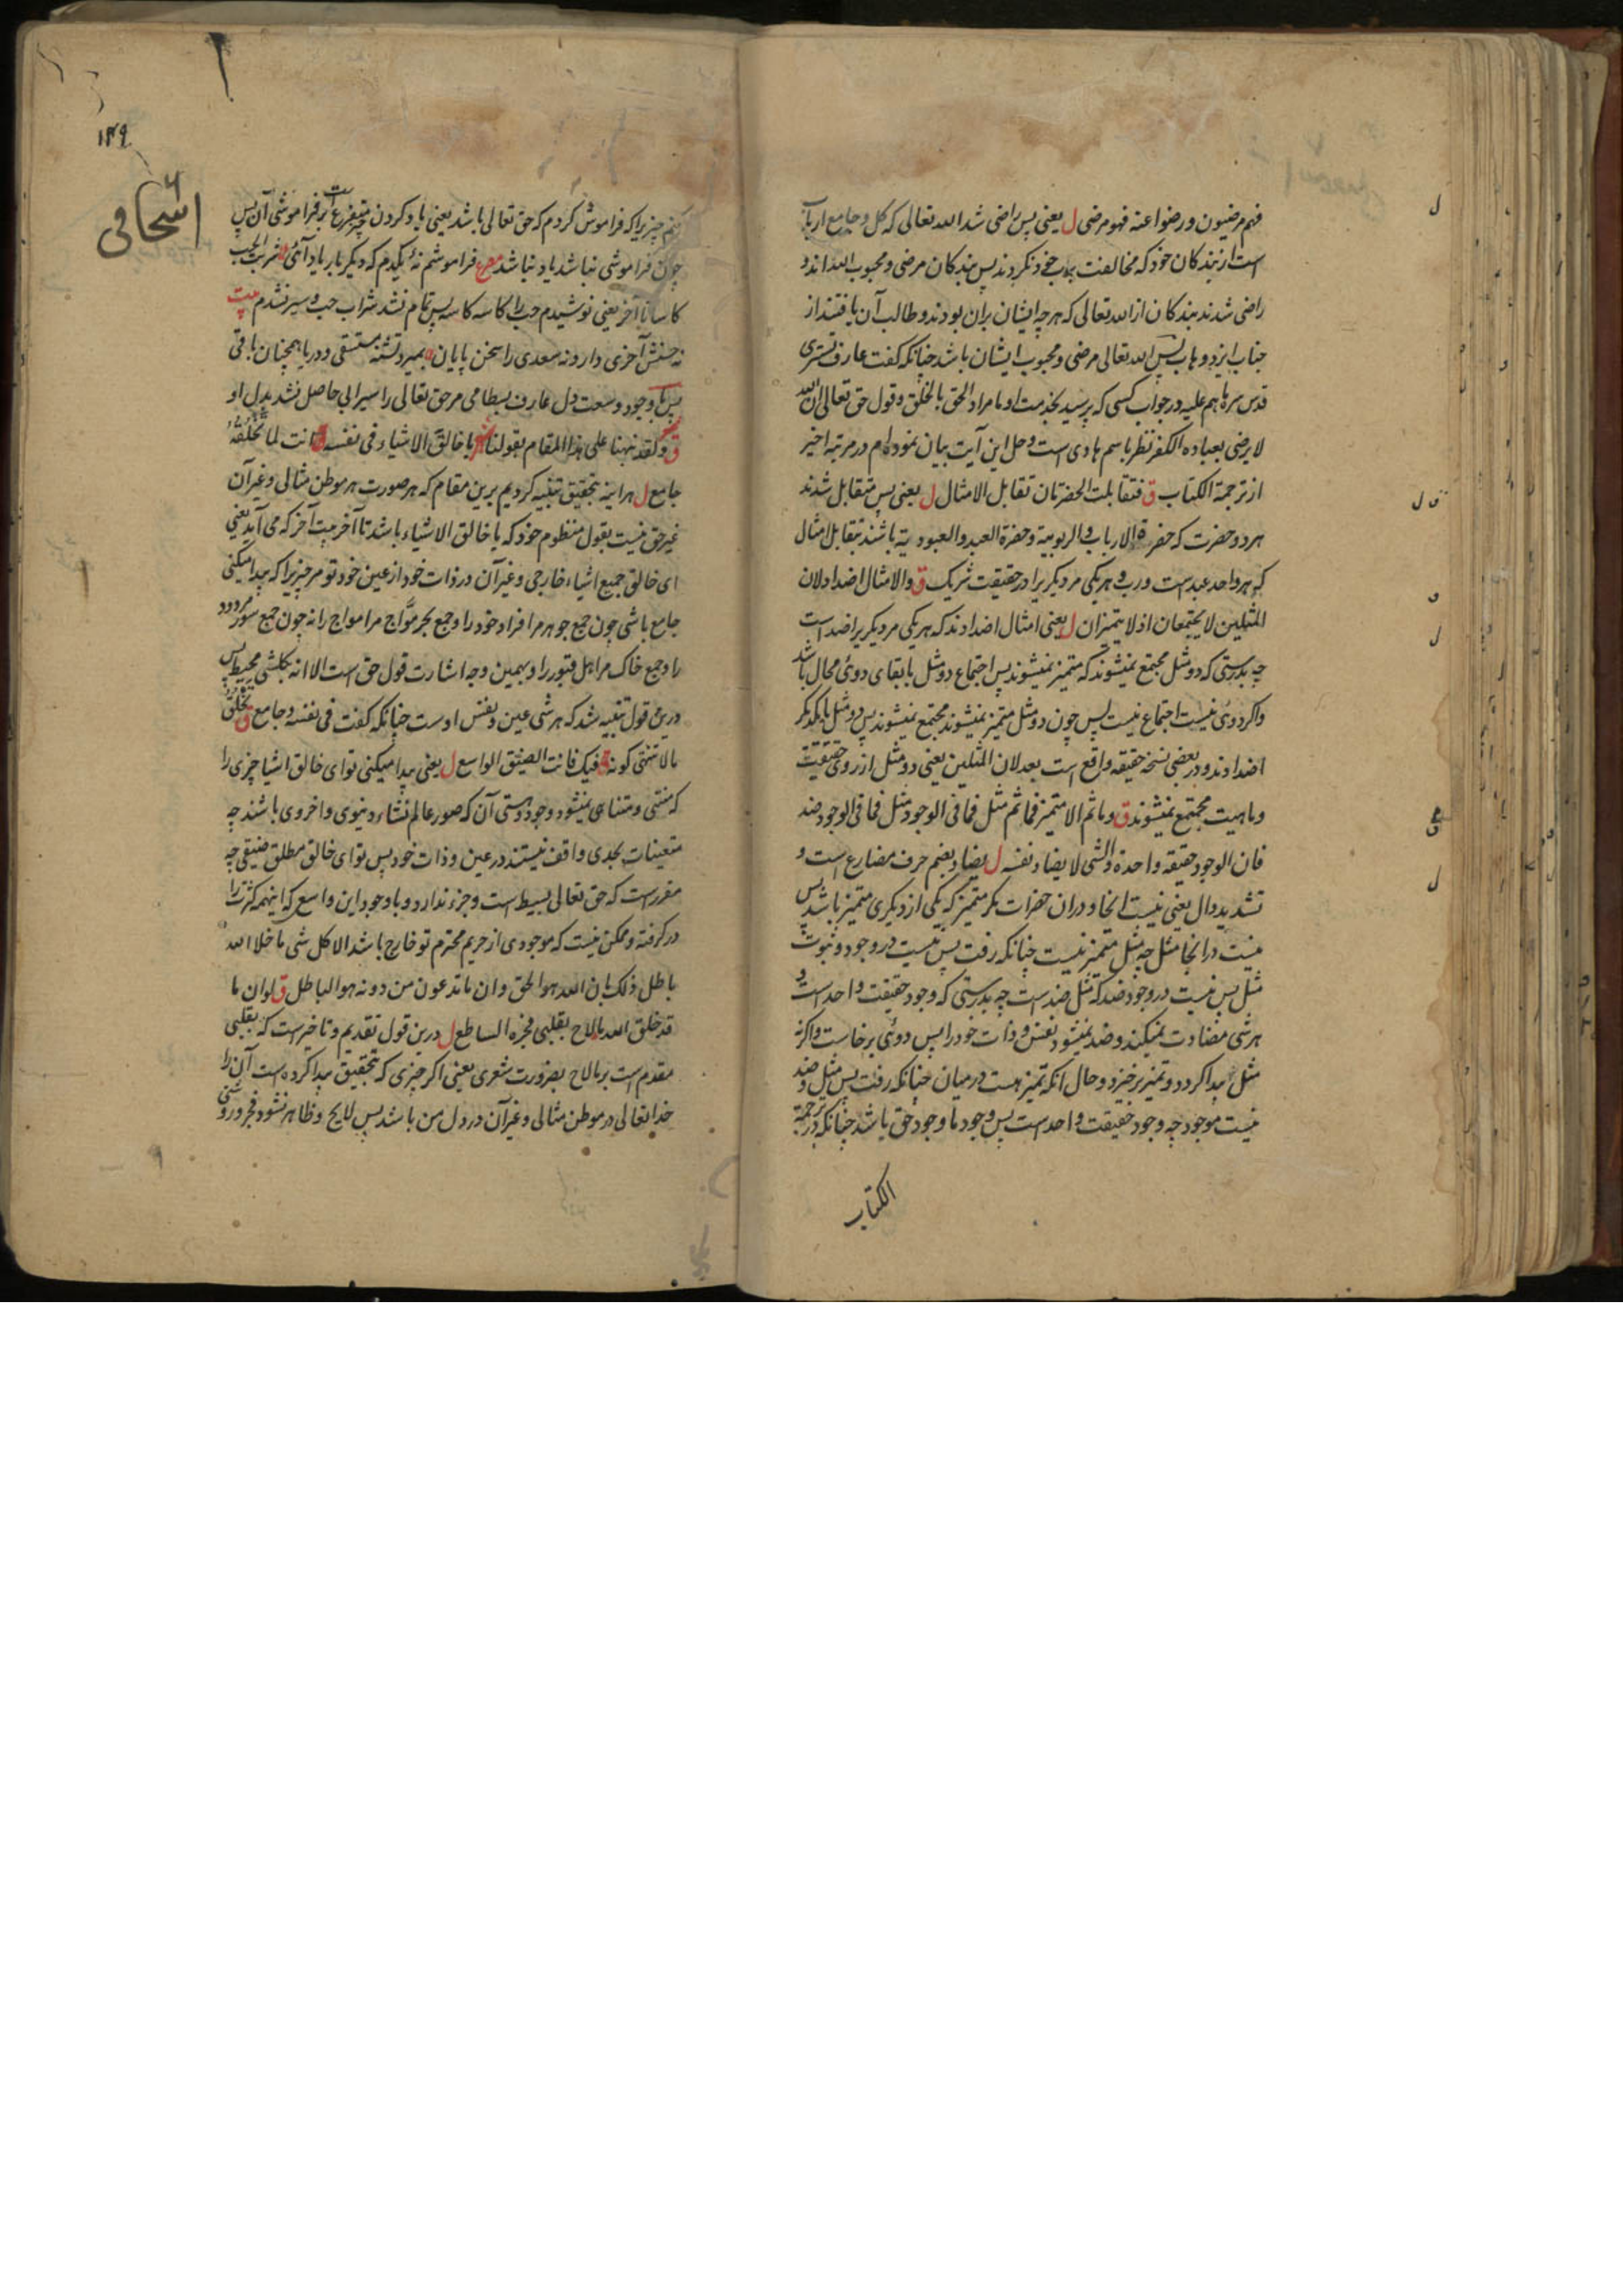 فهم مرضیون و رضوا عنه فهو مرضی ل یعنی پس راضی شد الله تعالی که کل و جامع ارباب
است از بندکان خود که مخالفت برب خود نکردند پس بندکان مرضی و محبوب الله اند و
راضی شدند بندکان از الله تعالی که هر چه ایشان بران بودند و طالب آن یافتند از
جناب ایزد وهاب پس الله تعالی مرضی و محبوب ایشان باشد چنانکه کفت عارف تستری
قدس سره در جواب کسی که پرسید بخدمت او ما مراد الحق بالخلق و قول حق تعالی ان الله
لا یرضی بعباده الکفر نظر باسم هادی است و حل این آیت بیان نموده ام در مرتبه اخیر
از ترجمة الکتاب ق فتقابلت الحضرتان تقابل الامثال ل یعنی پس متقابل شدند
هر دو حضرت که حضرة الارباب و الربوبیة و حضرة العبد و العبودیة باشند بتقابل امثال
که هر واحد عبد است و رب و هر یکی مر دیکریرا در حقیقت شریک ق والامثال اضداد لان
المثلین لا یجتمعان اذ لا یتمیزان ل یعنی امثال اضدادند که هر یکی مر دیکریرا ضد است
چه بدرستی که دو مثل مجتمع نمیشوند که متمیز نمیشوند پس اجتماع دو مثل با بقای دوئی محال باشد
و اکر دوئی نیست اجتماع نیست پس چون دو مثل متمیز نمیشوند مجتمع نمیشوند پس دو مثل با یکدیکر
اضدادند و در بعضی نسخه حقیقه واقع است بعد لان المثلین یعنی دو مثل از روی حقیقت
و ماهیت مجتمع نمیشوند ق و ما ثم الا متمیز فما ثم مثل فما فی الوجود مثل فما فی الوجود ضد
فان الوجود حقیقة واحدة و الشی لا یضاد نفسه ل یضاد بضم حرف مضارع است و
تشدید دال یعنی نیست انجا و دران حضرات مکر متمیز که یکی از دیکری متمیز باشد پس
نیست درانجا مثل چه مثل متمیز نیست چنانکه رفت پس نیست در وجود و ثبوت
مثل پس نیست در وجود ضد که مثل ضد است چه بدرستی که وجود حقیقت واحد است و
هر شی مضادت نمیکند و ضد نمیشود نفس و ذات خود را پس دوئی برخاست و اکر نه
مثل پیدا کردد و تمیز برخیزد و حال آنکه تمیز هست در میان چنانکه رفت پس مثل و ضد
نیست موجود چه وجود حقیقت واحد است پس وجود ما وجود حق باشد چنانکه در ترجمة
الکتاب
۱۴۹
اسحاقی
چیزیرا که فراموش کردم که حق تعالی باشد یعنی یاد کردن چیز متفرع است بر فراموشی آن پس
چون فراموشی نباشد یاد نباشد مصرع فراموشم نه یکدم که دیکر بار یاد آئی شربت الحب
کاسا تا آخر یعنی نوشیدم حب را کاسه کاسه پس تمام نشد شراب حب و سیر نشدم بیت
نه حسنش آخری دارد نه سعدی را سخن پایان بمیرد تشنه مستسقی و دریا همچنان باقی
پس با وجود وسعت دل عارف بسطامی مر حق تعالی را سیرابی حاصل نشد بدل او
ق و لقد نبهنا علی هذا المقام بقولنا شعر یا خالق الاشیاء فی نفسه انت لما تخلقه
جامع ل هر اینه بتحقیق تنبیه کردیم برین مقام که هر صورت هر موطن مثالی و غیر آن
غیر حق نیست بقول منظوم خود که یا خالق الاشیاء باشد تا آخر بیت آخر که می آید یعنی
ای خالق جمیع اشیاء خارجی و غیر آن در ذات خود از عین خود تو مر چیزیرا که پیدا میکنی
جامع باشی چون جمع جوهر مر افراد خود را و جمع بحر مواج مر امواج را نه چون جمع سور مر دود
را و جمع خاک مر اهل قبور را و بهمین وجه اشارت قول حق است الا انه بکل شی محیط پس
درین قول تنبیه شد که هر شی عین و نفس اوست چنانکه کفت فی نفسه و جامع ق تخلق
ما لا تنتهی کونه فیک فانت الضیق الواسع ل یعنی پیدا میکنی تو ای خالق اشیا چیزی را
که منتهی و متناهی نمیشود وجود و هستی آن که صور عالم نشاء دنیوی و اخروی باشند چه
متعینات بحدی واقف نیستند در عین و ذات خود پس تو ای خالق مطلق ضیقی چه
مقرر است که حق تعالی بسیط است و جزء ندارد و با وجود این واسع که اینهمه کثرت را
در کرفته و ممکن نیست که موجودی از حریم محترم تو خارج باشد الا کل شی ما خلا الله
باطل ذلک بان الله هو الحق و ان ما تدعون من دونه هو الباطل ق لو ان ما
قد خلق الله ما لاح بقلبی فجره الساطع ل درین قول تقدیم و تاخیر است که بقلبی
مقدم است بر ما لاح بضرورت شعری یعنی اکر چیزی که بتحقیق پیدا کرده است آن را
خدا تعالی در موطن مثالی و غیر آن در دل من باشد پس لایح و ظاهر نشود فجر و روشنی